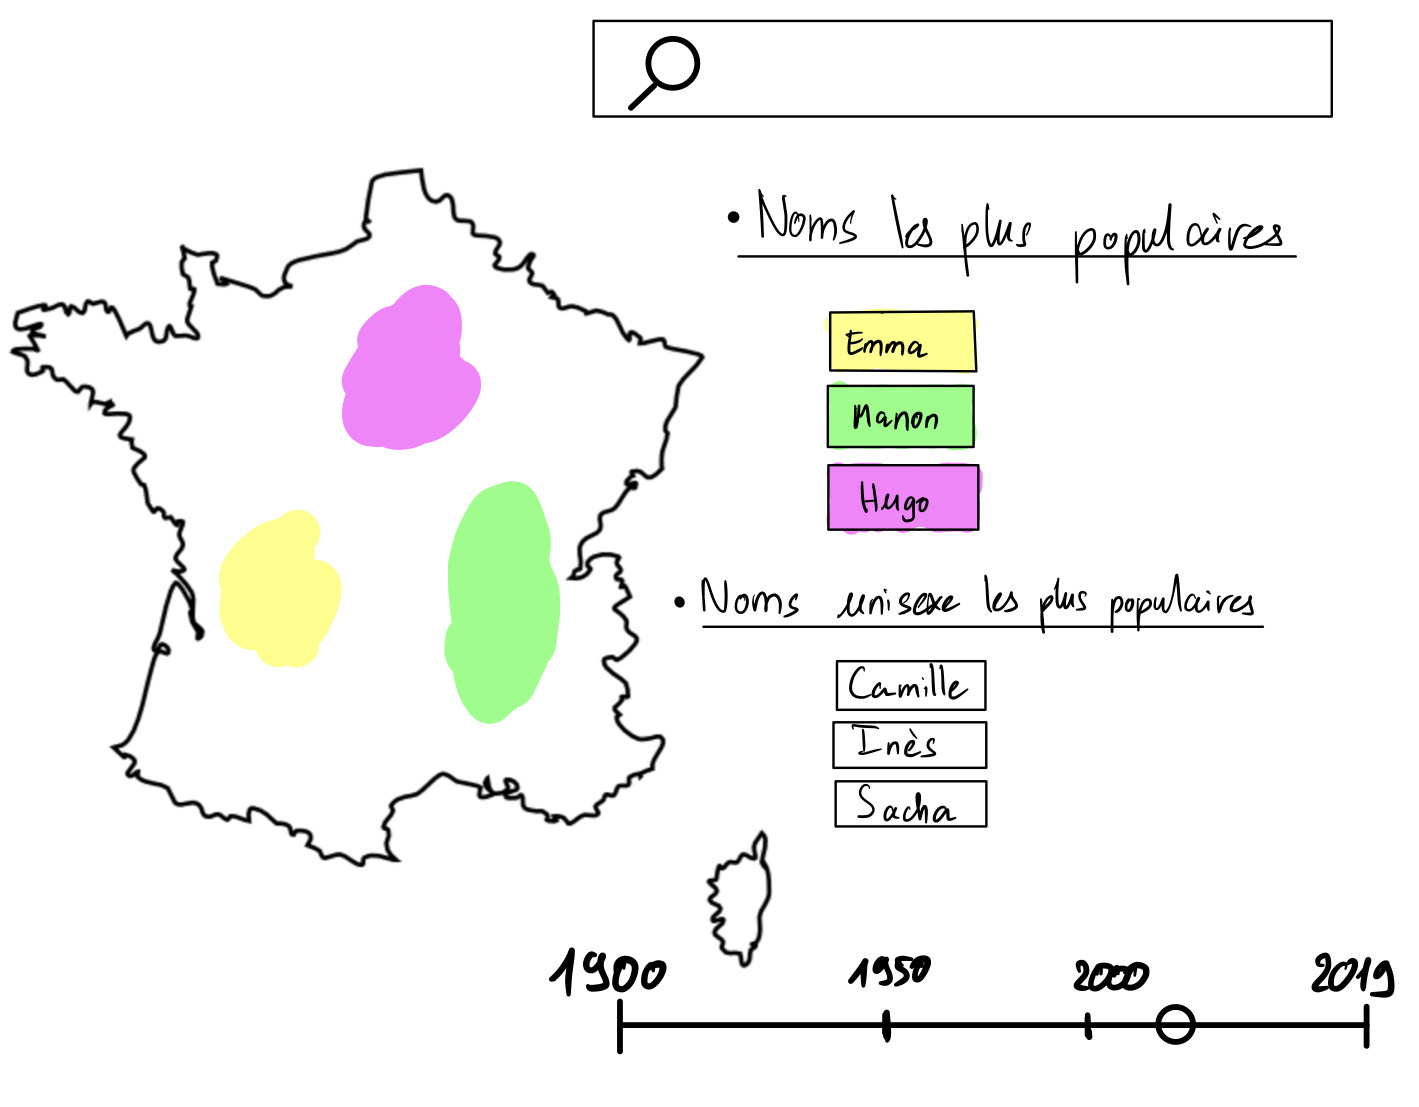 • Noms les plus populaires
Emma
Manon
Hugo
• Noms unisexe les plus populaires
Camille
Inès
Sacha
1900 1950 2000 2019